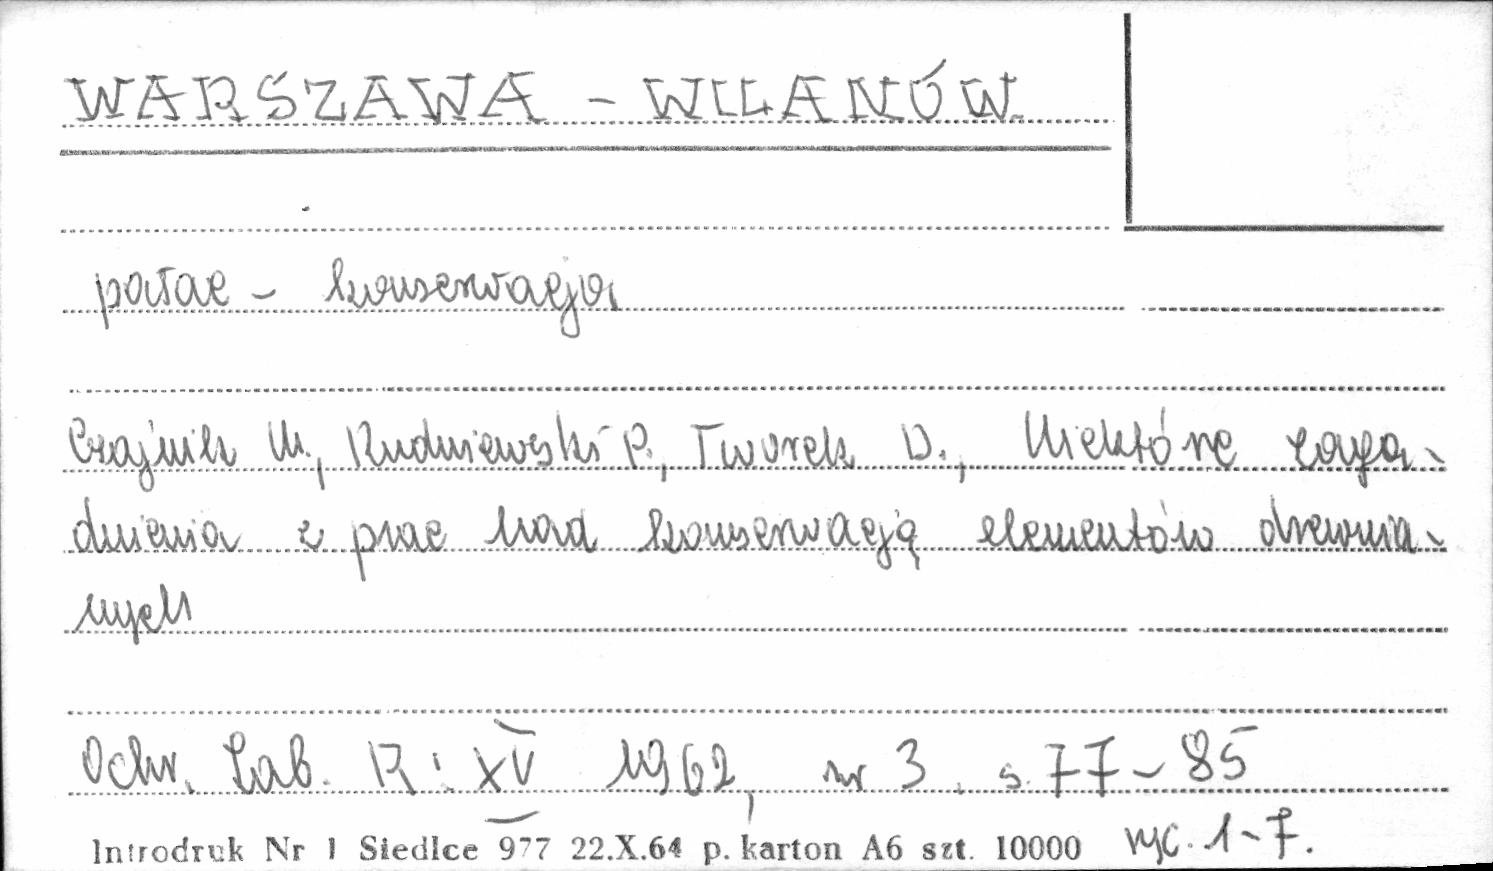 WARSZAWA - WILANÓW
pałac - konserwacja
Czajnik M., Rudniewski P., Tworek D., Niektóre zaga-
dnienia z prac nad konserwacją elementów drewnia-
nych
Ochr. Zab. R: XV 1962, nr 3. s. 77-85
ryc. 1-7.
Introdruk Nr 1 Siedlce 977 22.X.64 p. karton A6 szt. 10000